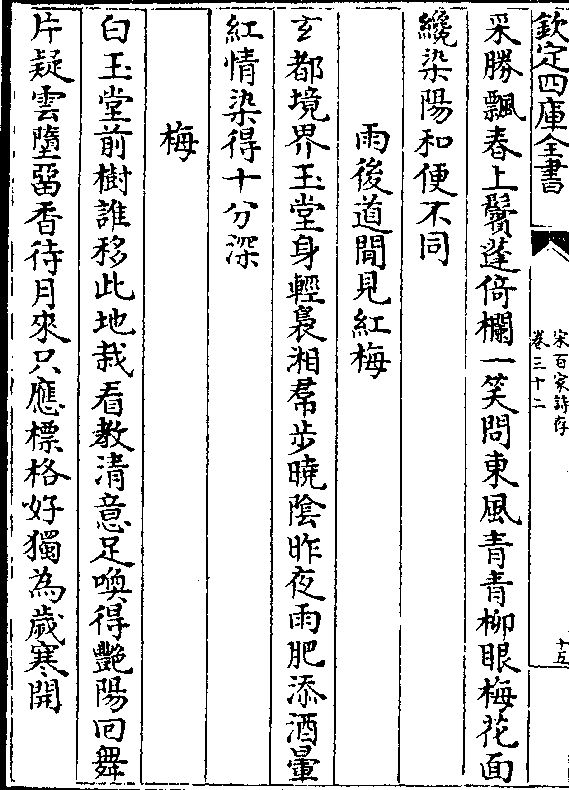 欽定四庫全書
宋百家詩存
卷三十二
十五
采勝飄春上鬢蓬倚欄一笑問東風青青柳眼梅花面
纔染陽和便不同
雨後道間見紅梅
玄都境界玉堂身輕裊湘帬步曉陰昨夜雨肥添酒暈
紅情染得十分深
梅
白玉堂前樹誰移此地栽看教清意足喚得艷陽回舞
片疑雲墮留香待月來只應標格好獨為歲寒開